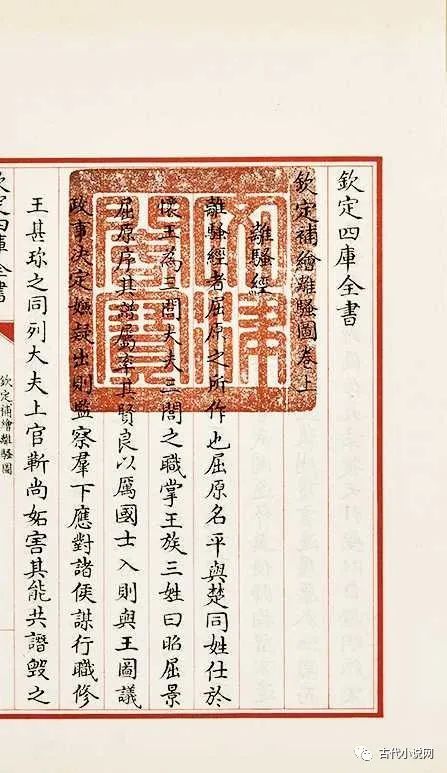 欽定四庫全書
欽定補繪離騷圖卷上
離騷經
離騷經者屈原之所作也屈原名平與楚同姓仕於
懷王為三閭大夫三閭之職掌王族三姓曰昭屈景
屈原序其譜屬率其賢良以厲國士入則與王圖議
政事決定嫌疑出則監察羣下應對諸侯謀行職修
王甚珍之同列大夫上官靳尚妬害其能共譖毀之
欽定四庫全書
欽定補繪離騷圖
古代小说网